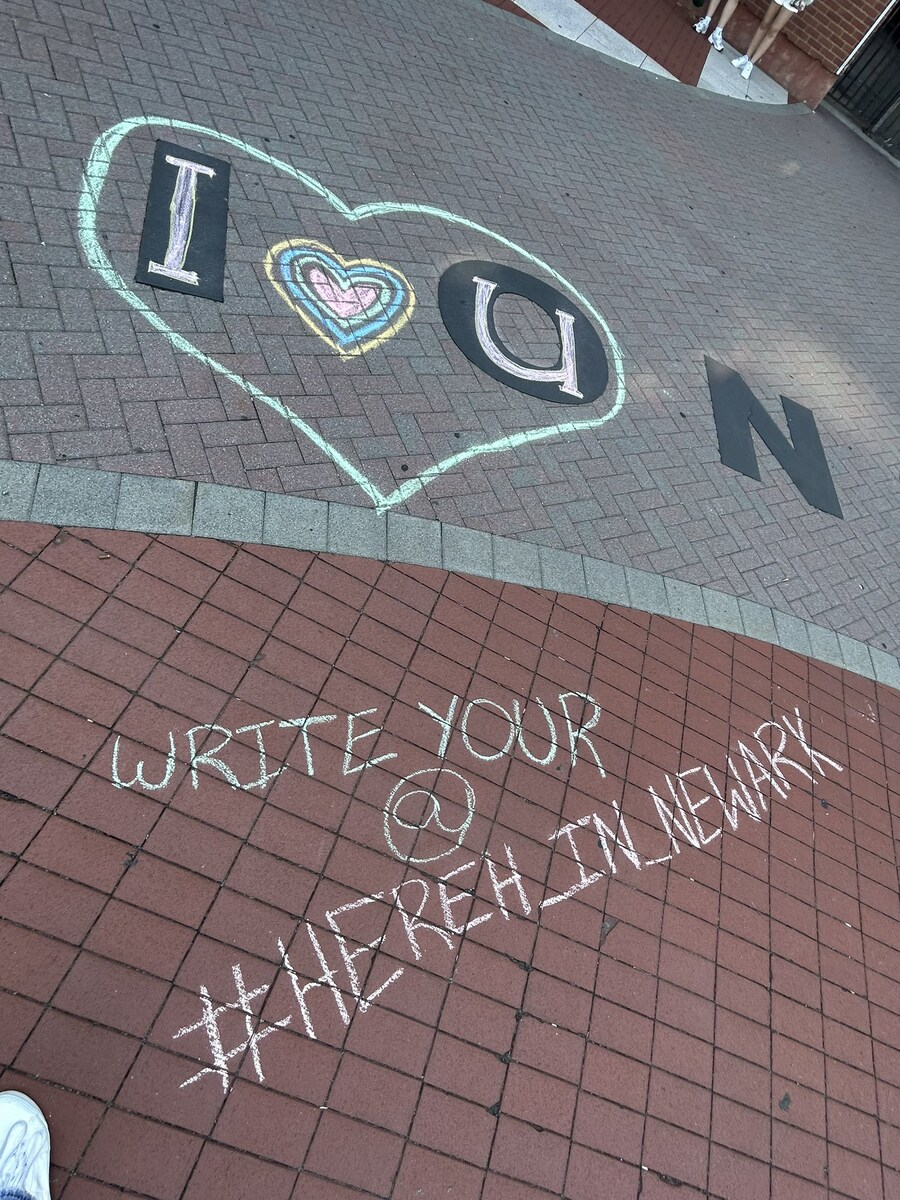 I ♥ U N
WRITE YOUR
@
#HEREH_IN_NEWARK